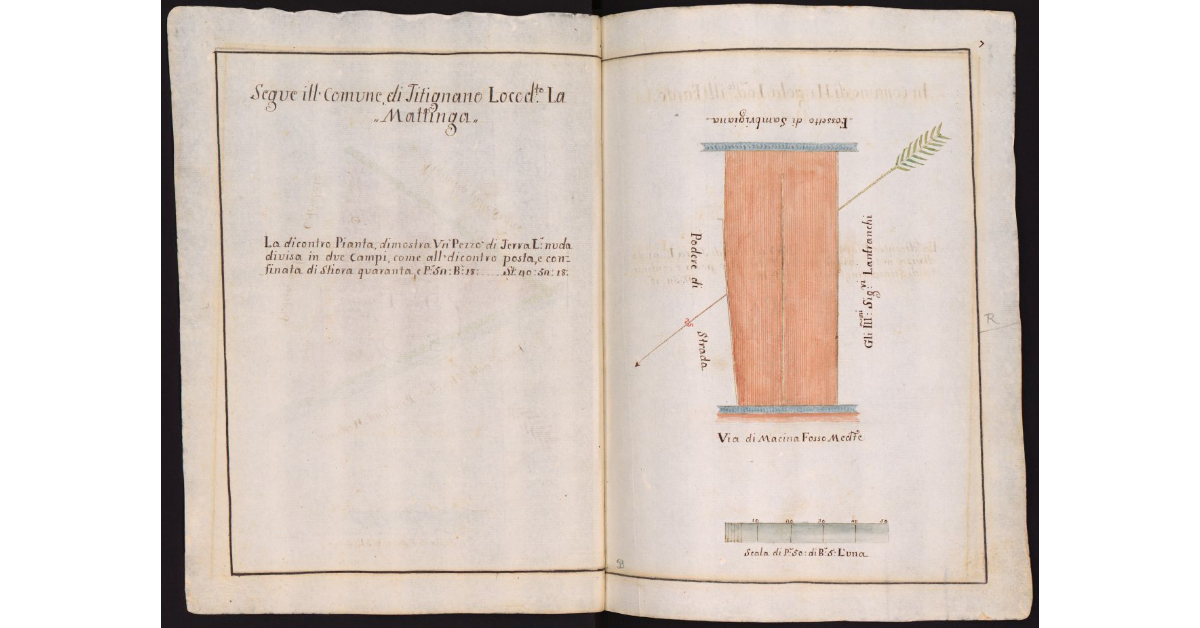 Segue ill. Comune di Titignano Locc. d.to La
„Mattinga„
La dicontro Pianta, dimostra Vn' Pezzo di Terra L.a nuda
divisa in due Campi, come all' dicontro posta, e con=
finata di Stiora quaranta, e P.e 50: B.a 18: ..... St. 40: 50: 18:
7
Fossetto di Sambrigiana
Podere di
Strada
Gli Ill:mi Sig:ri Lanfranchi
R
Via di Macina Fosso Med.re
10 20 30 40 50
Scala di P.e 50: di B.a 5: L'una